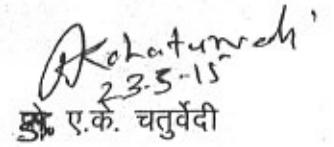 AKChaturvedi
23-5-15
डॉ. ए.के. चतुर्वेदी